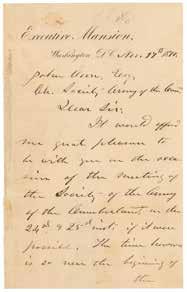 Executive Mansion,
Washington, D.C. Nov. 17th 1880.
John Esq,
Ch. Society Army of the Cum
Dear Sir;
It would afford
me great pleasure to
be with you on the occa
sion of the meeting of
the Society of the Army
of the Cumberland, on the
24th & 25th inst; if it were
possible. The time however
is so near the beginning of
the